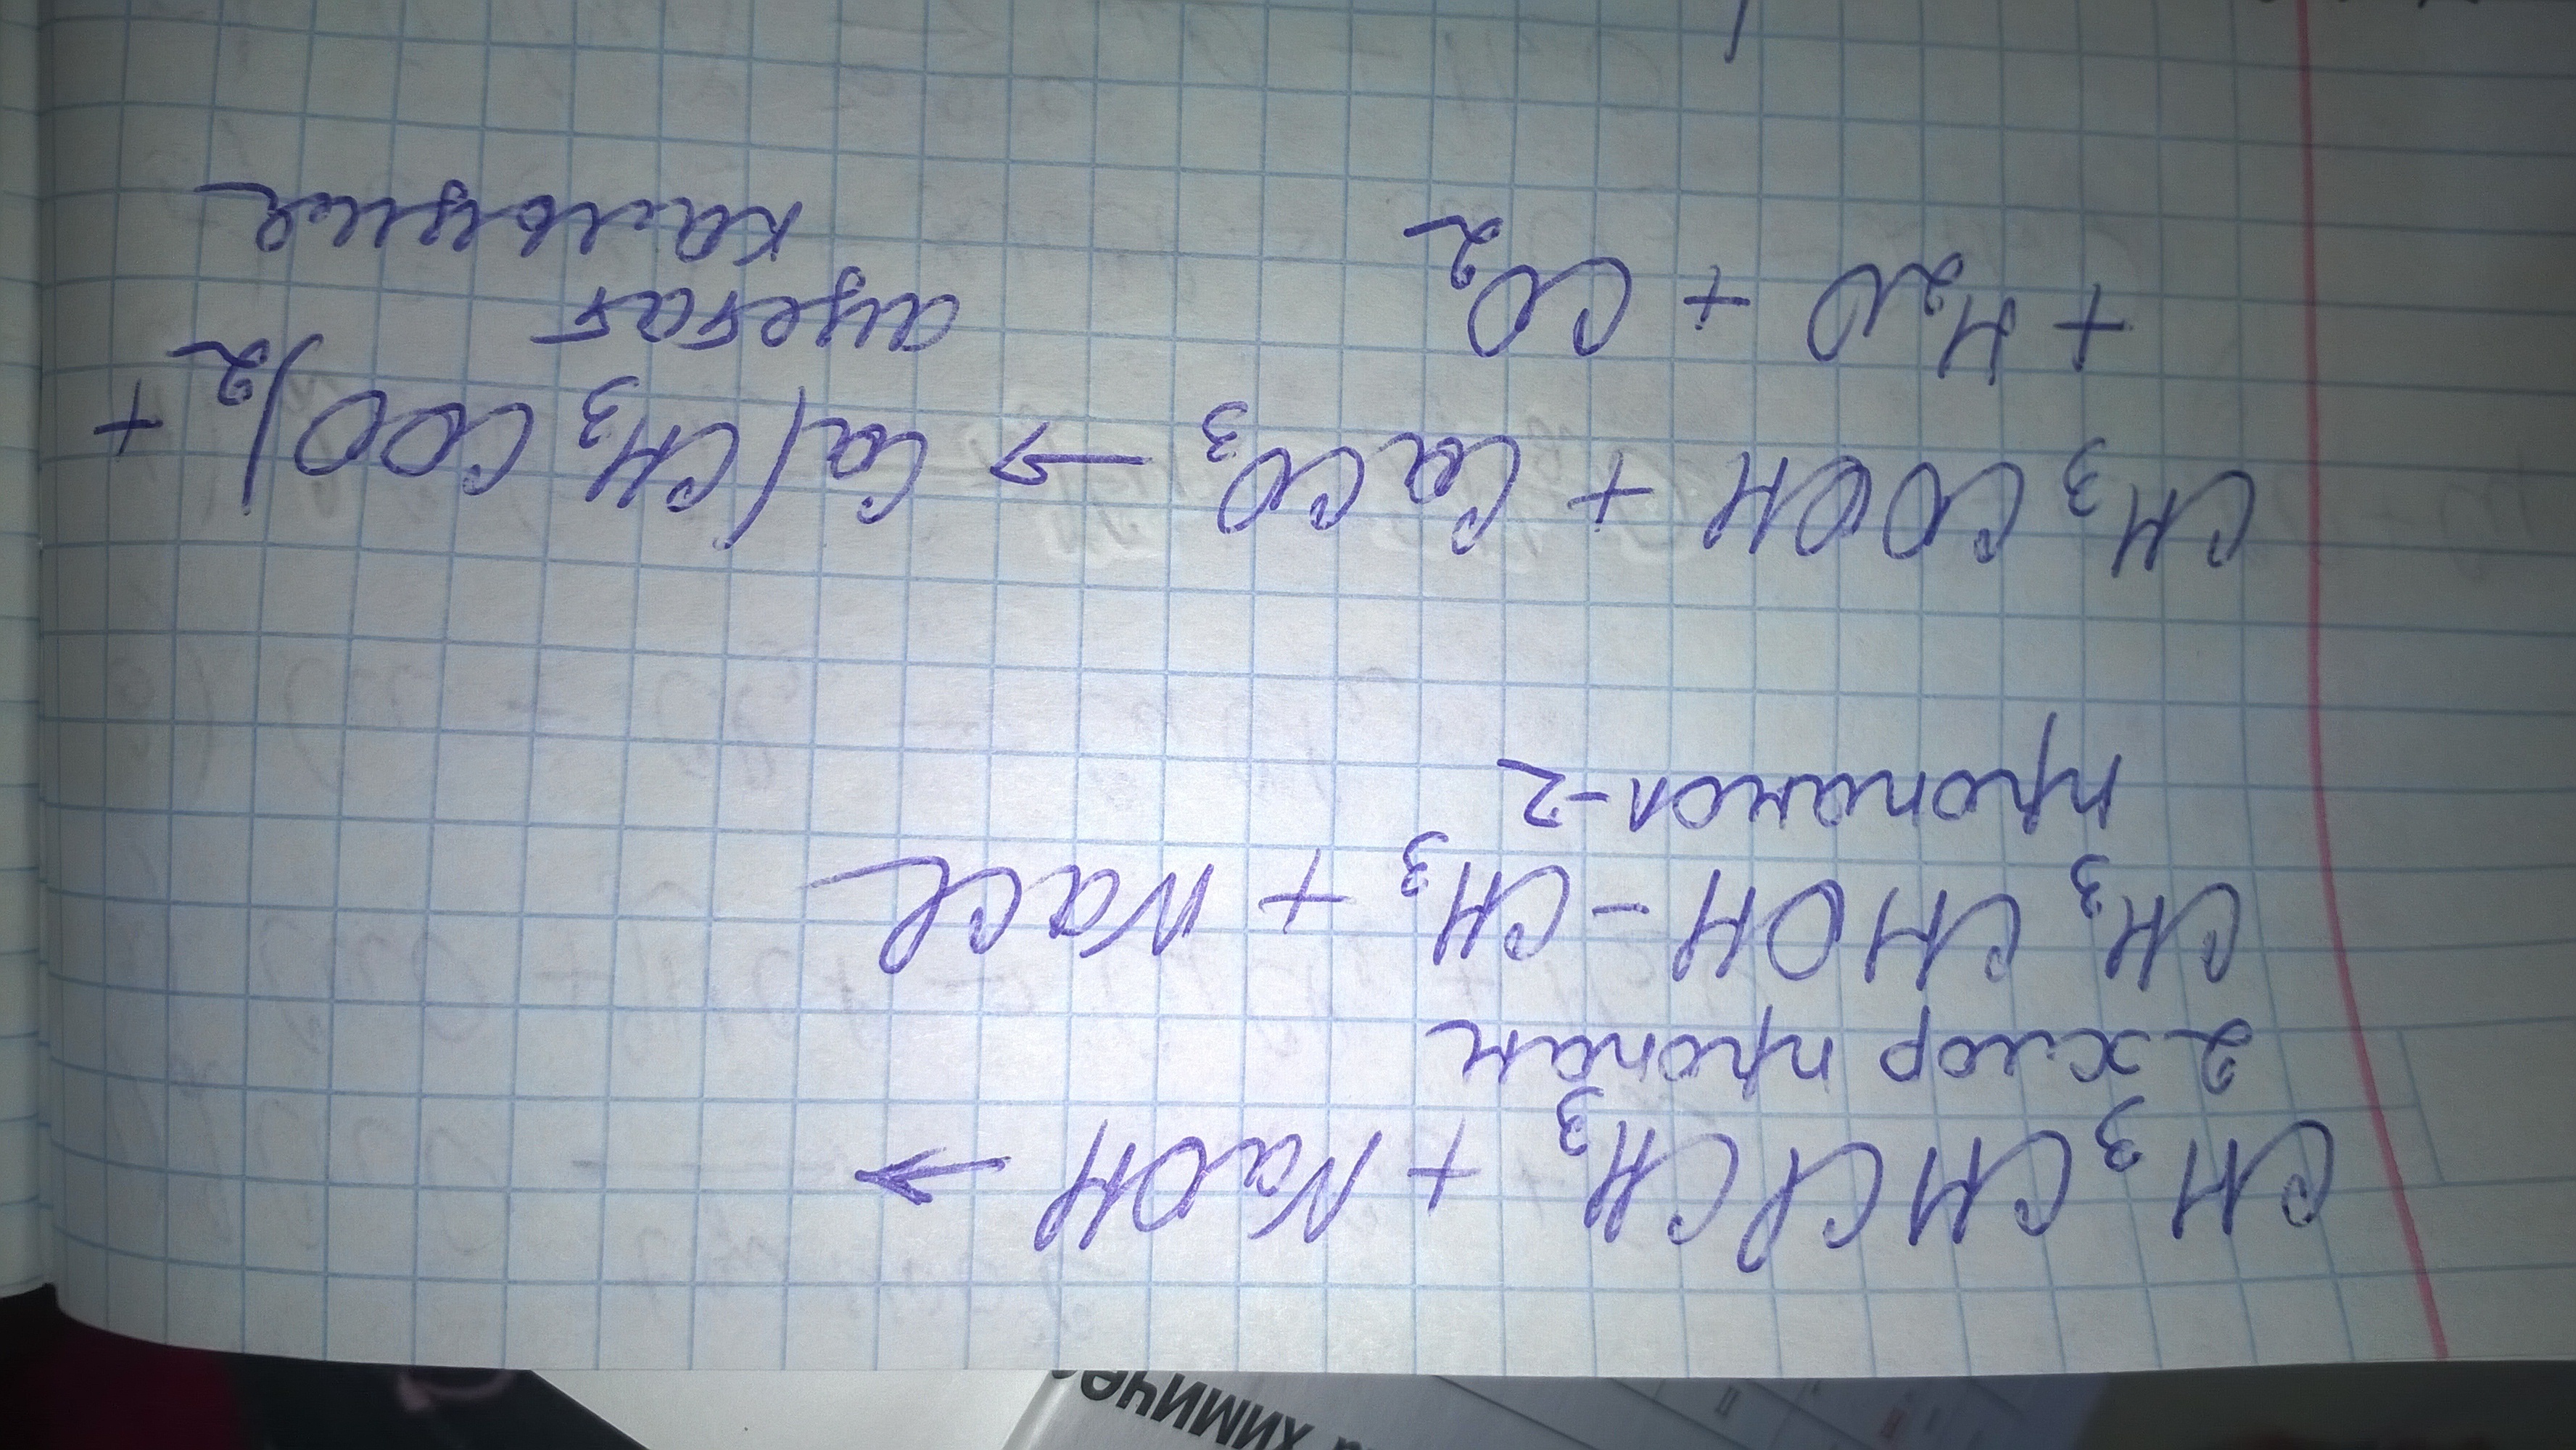 CH₃CHClCH₃ + NaOH →
2 хлор пропан
CH₃ CHOH - CH₃ + NaCl
пропанол-2
CH₃COOH + CaCO₃ → Ca(CH₃COO)₂ +
ацетат
кальция
+ H₂O + CO₂
химичес